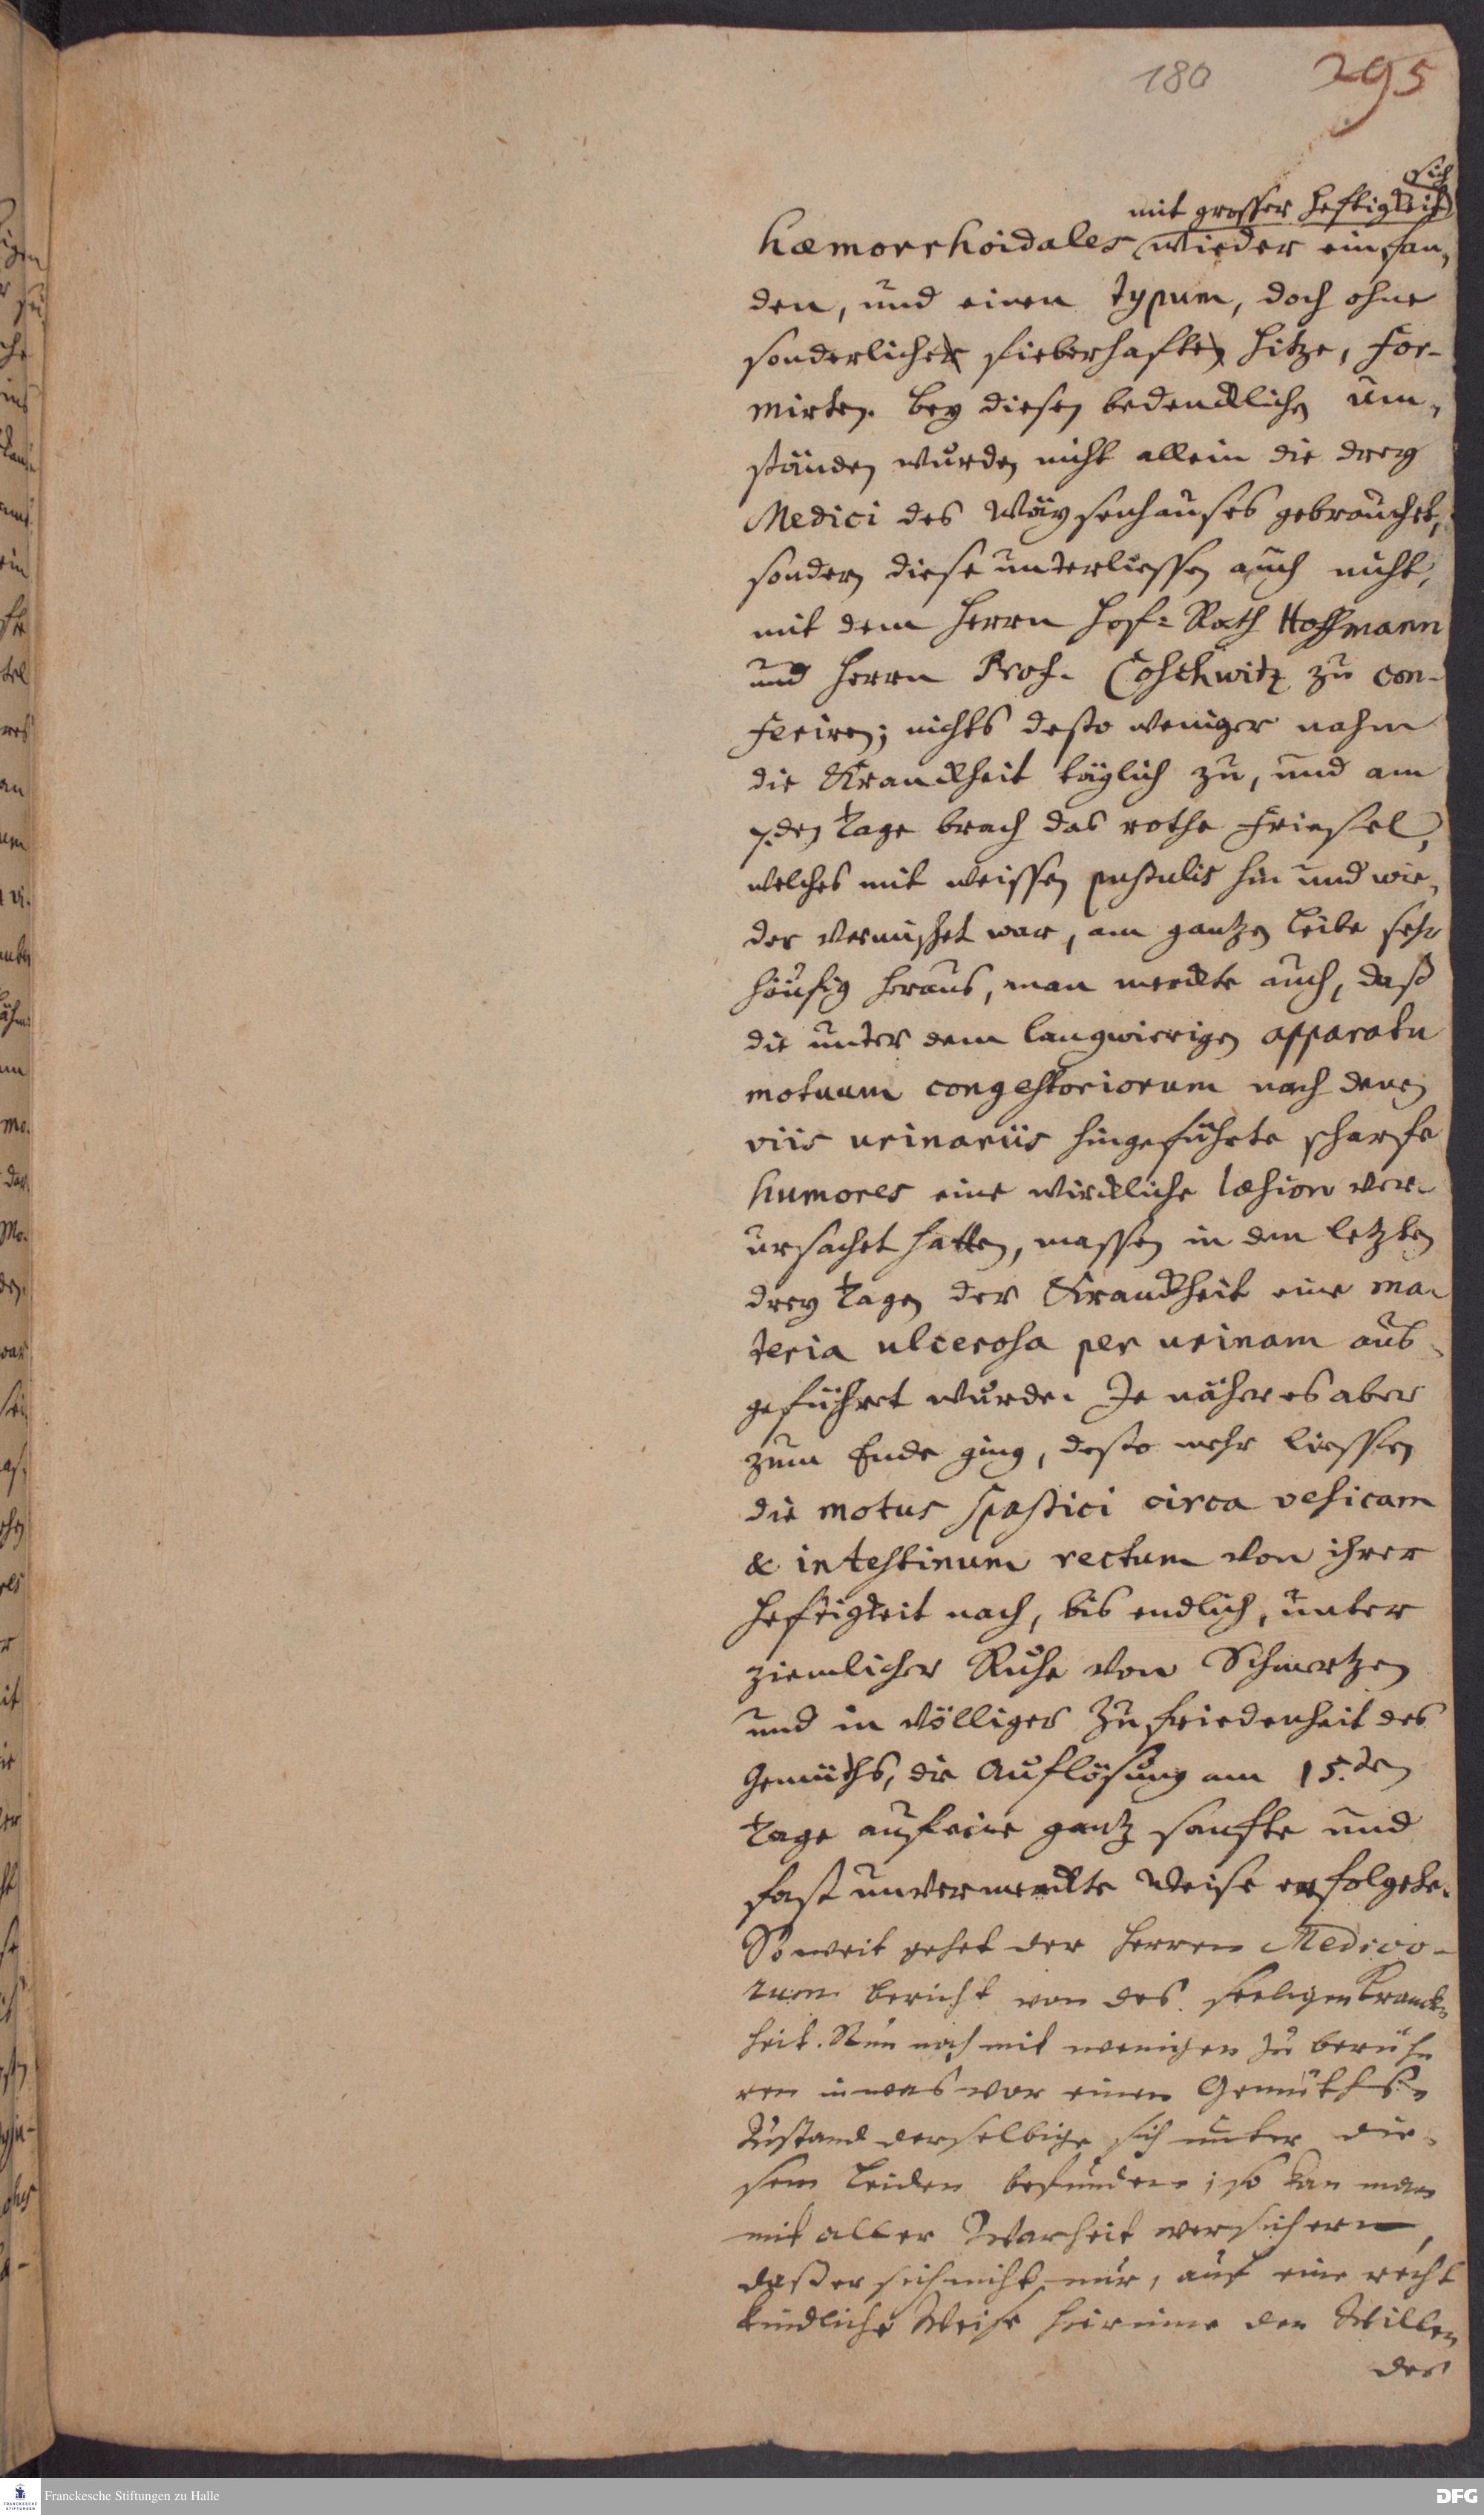 180 295
sich
mit grosser Hefftigkeit
hæmorrhoidales wieder einfan,
den, und einen typum, doch ohne
sonderliche fieberhafte Hitze, for-
mirten. Bey diesen bedencklichen Um,
ständen wurden nicht allein die drey
Medici des Wäysenhauses gebrauchet,
sondern diese unterliessen auch nicht,
mit dem Herrn Hof-Rath Hoffmann
und Herrn Prof. Coschwitz zu con-
feriren; nichts desto weniger nahm
die Kranckheit täglich zu, und am
7.den Tage brach das rothe Friesel,
welches mit weissen pustulis hin und wie,
der vermischet war, am gantzen Leibe sehr
häufig heraus, man merckte auch, daß
die unter dem langwierigen apparatu
motuum congestoriorum nach denen
viis urinariis hingeführte scharfe
humores eine wirckliche læsion ver-
ursachet hatten, massen in den letzten
drey Tagen der Kranckheit eine ma-
teria ulcerosa per urinam aus-
geführet wurde. Je näher es aber
zum Ende ging, desto mehr liessen
die motus spastici circa vesicam
& intestinum rectum von ihrer
Heftigkeit nach, bis endlich, unter
ziemlicher Ruhe von Schmertzen
und in völliger Zufriedenheit des
Gemüths, die Auflösung am 15.ten
Tage auf eine gantz sanfte und
fast unvermerckte Weise erfolgete.
So weit gehet der Herren Medico-
rum Bericht von des seeligen Kranck-
heit. Nun noch mit wenigen zu berüh-
ren in was vor einen Gemüths-
Zustand derselbige sich unter die-
sem Leiden befunden; so kan man
mit aller Warheit versichern,
daß er sich nicht nur, auf eine recht
kindliche Weise hierinne den Willen
des
Franckesche Stiftungen zu Halle
DFG